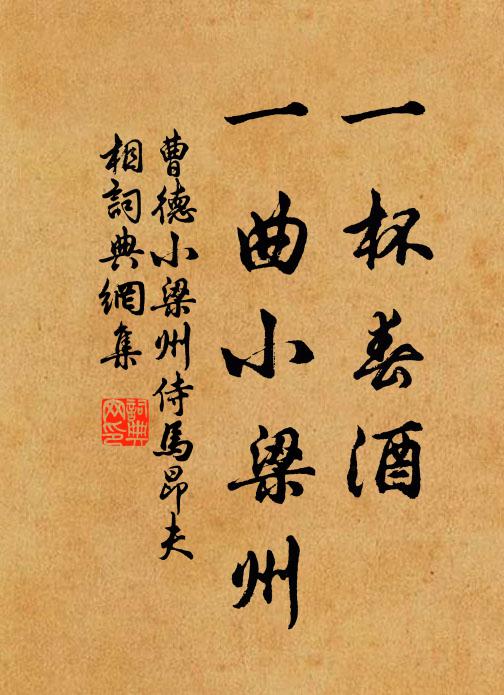 一杯春酒
一曲小梁州
曹德小梁州侍馬昂夫
相詞典網集
詞典
网印